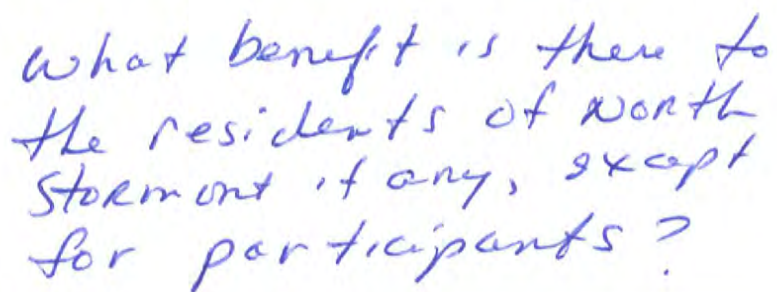 What benefit is there to
the residents of North
Stormont if any, except
for participants?